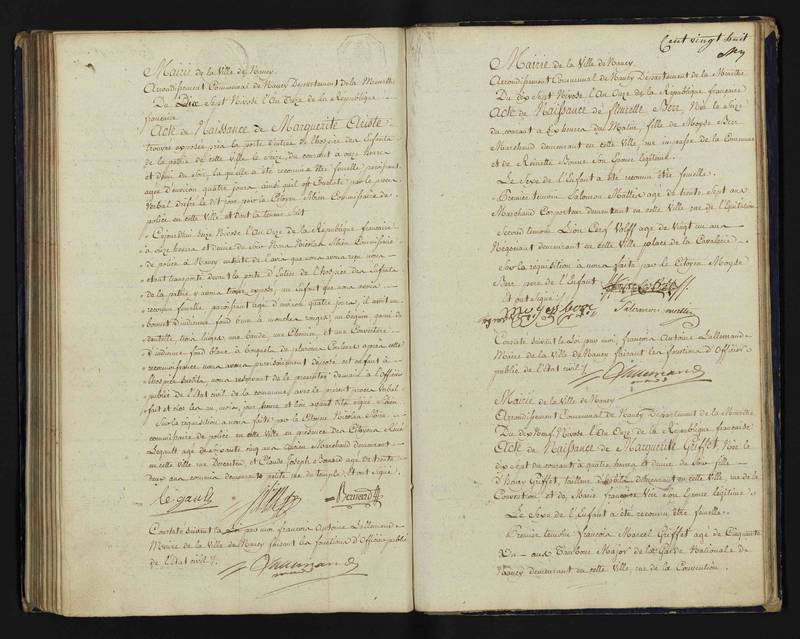 Mairie de la Ville de Nancy
Arrondissement Communal de Nancy Département de la Meurthe
Du Dix Sept Nivose l'An Onze de la République
française
Acte de Naissance de Marguerite Ariste
trouvée exposée près la porte d'entrée de l'hospice des Enfants
de la patrie de cette ville le Seize du courant à onze heures
et demie du Soir, laquelle a été reconnue être femelle paroissant
agée d'environ quatre jours ainsi qu'il est Constaté par le procès
Verbal dressé le dit jour par le Citoyen Commissaire de
police en cette Ville et dont la teneur Suit
Cejourd'hui Seize Nivose l'An Onze de la République française
à onze heures et demie du Soir Nous Nicolas Commissaire
de police à Nancy ensuite de l'avis que nous avons reçu nous
étant transporté devant la porte d'Entrée de l'hospice des Enfants
de la patrie y avons trouvé exposé, un Enfant que nous avons
reconnu femelle, paroissant agé d'environ quatre jours, il avoit un
bonnet d'indienne fond brun à mouches rouges, un béguin garni de
dentelle, trois langes, une bande, une Chemise, et une Couverture
d'indienne fond blanc à bouquets de plusieurs Couleurs après cette
reconnoissance nous avons provisoirement déposé cet enfant à
l'hospice susdit, nous réservant de le présenter demain à l'Officier
public de l'Etat civil de la commune, avec le présent procès Verbal
fait et clos les an, mois, jour, heure et lieu avant dits Signé
Sur la réquisition à nous faite par le Citoyen Nicolas
commissaire de police en cette Ville en présence des Citoyens
Legault agé de soixante cinq ans ancien Marchand demeurant
en cette ville rue et Claude Joseph Bernard agé de trente
deux ans commis demeurant petite rue du temple; Et ont signé
Legault Bernard
Constaté suivant la Loi par moi françois Antoine Lallemand
Maire de la Ville de Nancy faisant les fonctions d'Officier public
de l'Etat civil
Lallemand
Cent vingt huit
Mairie de la Ville de Nancy
Arrondissement Communal de Nancy Département de la Meurthe
Du dix Sept Nivose l'An Onze de la République française
Acte de Naissance de fleurette Berr, Née le Seize
du courant à dix heures du Matin, fille de Moyse Berr
Marchand demeurant en cette Ville, rue
et de Reinette Bonne son Epouse légitime
Le Sexe de l'Enfant a été reconnu être femelle
Premier témoin Salomon Mattis agé de trente Sept ans
Marchand Corporteur demeurant en cette Ville rue de l'Equitation
Second témoin Lion Cerf Volff agé de vingt un ans
Négociant demeurant en cette Ville place de la Cavalerie
Sur la réquisition à nous faite par le Citoyen Moyse
Berr pere de l'Enfant
Et ont signé
moyse berr Salomon mattis
Constaté suivant la Loi par moi, françois Antoine Lallemand
Maire de la Ville de Nancy faisant les fonctions d'Officier
public de l'état civil
Lallemand
Mairie de la Ville de Nancy
Arrondissement Communal de Nancy Département de la Meurthe
Du dix Neuf Nivose l'An Onze de la République française
Acte de Naissance de Marguerite Griffet, Née le
dix Sept du courant à quatre heures et demie du Soir fille
d'Henry Griffet, tailleur d'habits demeurant en cette Ville rue de la
Convention et de Marie françoise son Epouse légitime
Le Sexe de l'Enfant a été reconnu être femelle
Premier témoin françois Marcel Griffet agé de Cinquante
Un ans Tambour Major de la Garde Nationale de
Nancy demeurant en cette Ville, rue de la Convention